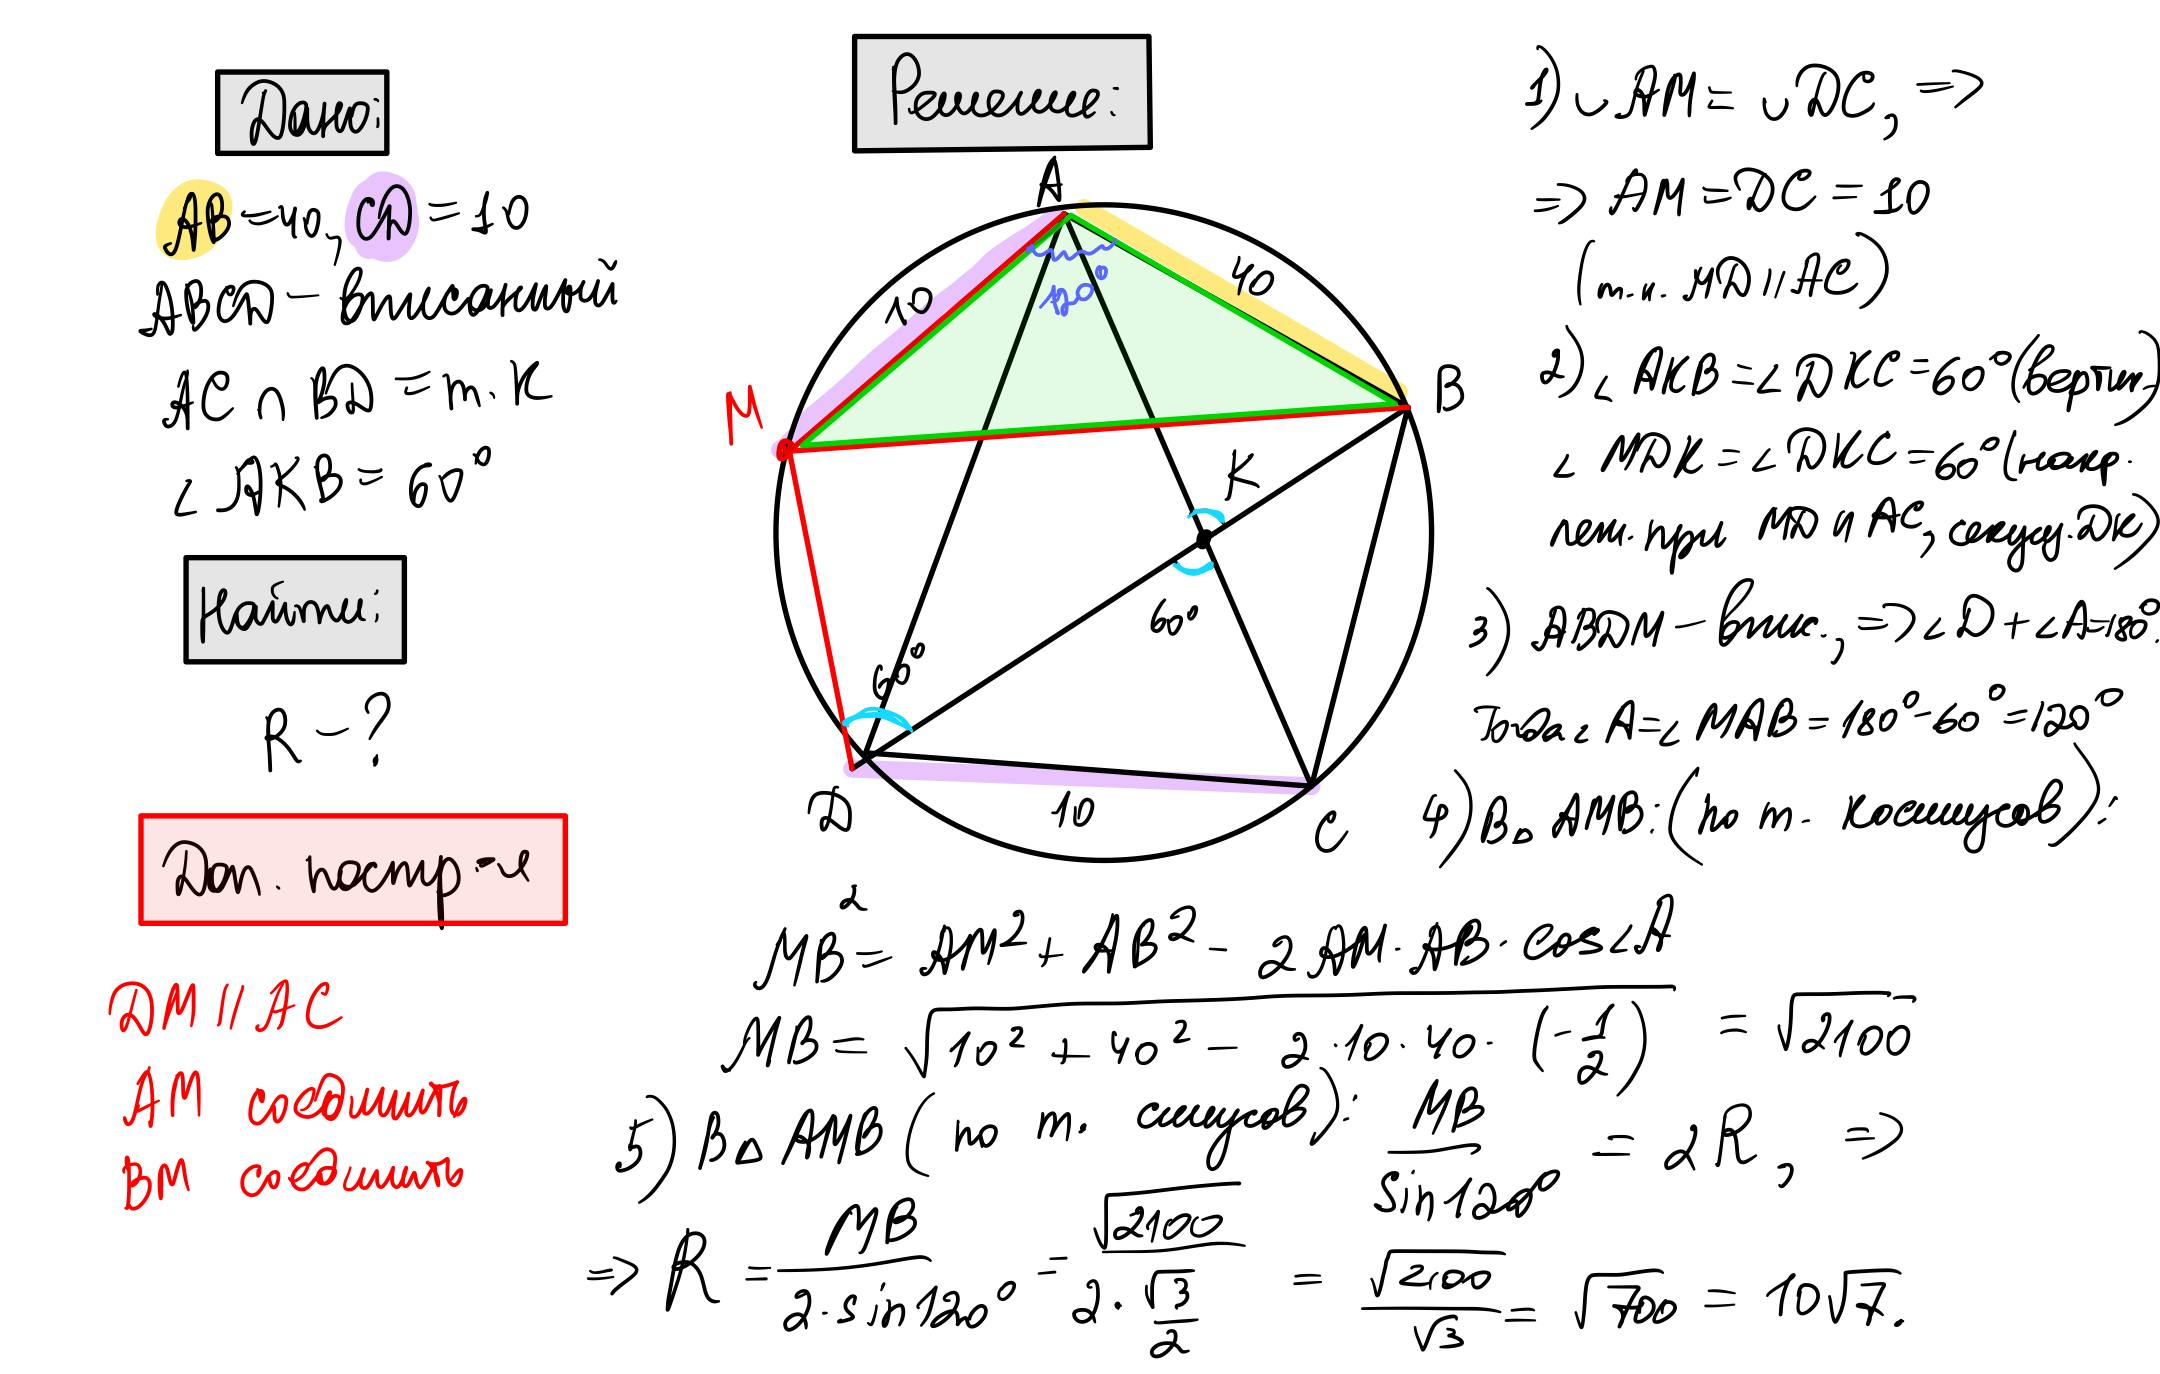 Дано:
AB = 40, CD = 10
ABCD – вписанный
AC ∩ BD = т. K
∠ AKB = 60°
Найти:
R – ?
Доп. постр-е
DM || AC
AM соединить
BM соединить
Решение:
A
10
120°
40
M
B
K
60°
60°
D
10
C
1) ∪ AM = ∪ DC, =>
=> AM = DC = 10
(т.к. MD || AC)
2) ∠ AKB = ∠ DKC = 60° (вертик.)
∠ MDK = ∠ DKC = 60° (накр.
леж. при MD и AC, секущ. DK)
3) ABDM – впис., => ∠ D + ∠ A = 180°.
Тогда ∠ A = ∠ MAB = 180° - 60° = 120°
4) В △ AMB: (по т. косинусов):
MB² = AM² + AB² - 2 AM · AB · cos∠A
MB = √(10² + 40² - 2 · 10 · 40 · (-1/2)) = √2100
5) В △ AMB (по т. синусов): MB/sin120° = 2R, =>
=> R = MB/(2·sin120°) = √2100/(2·√3/2) = √2100/√3 = √700 = 10√7.